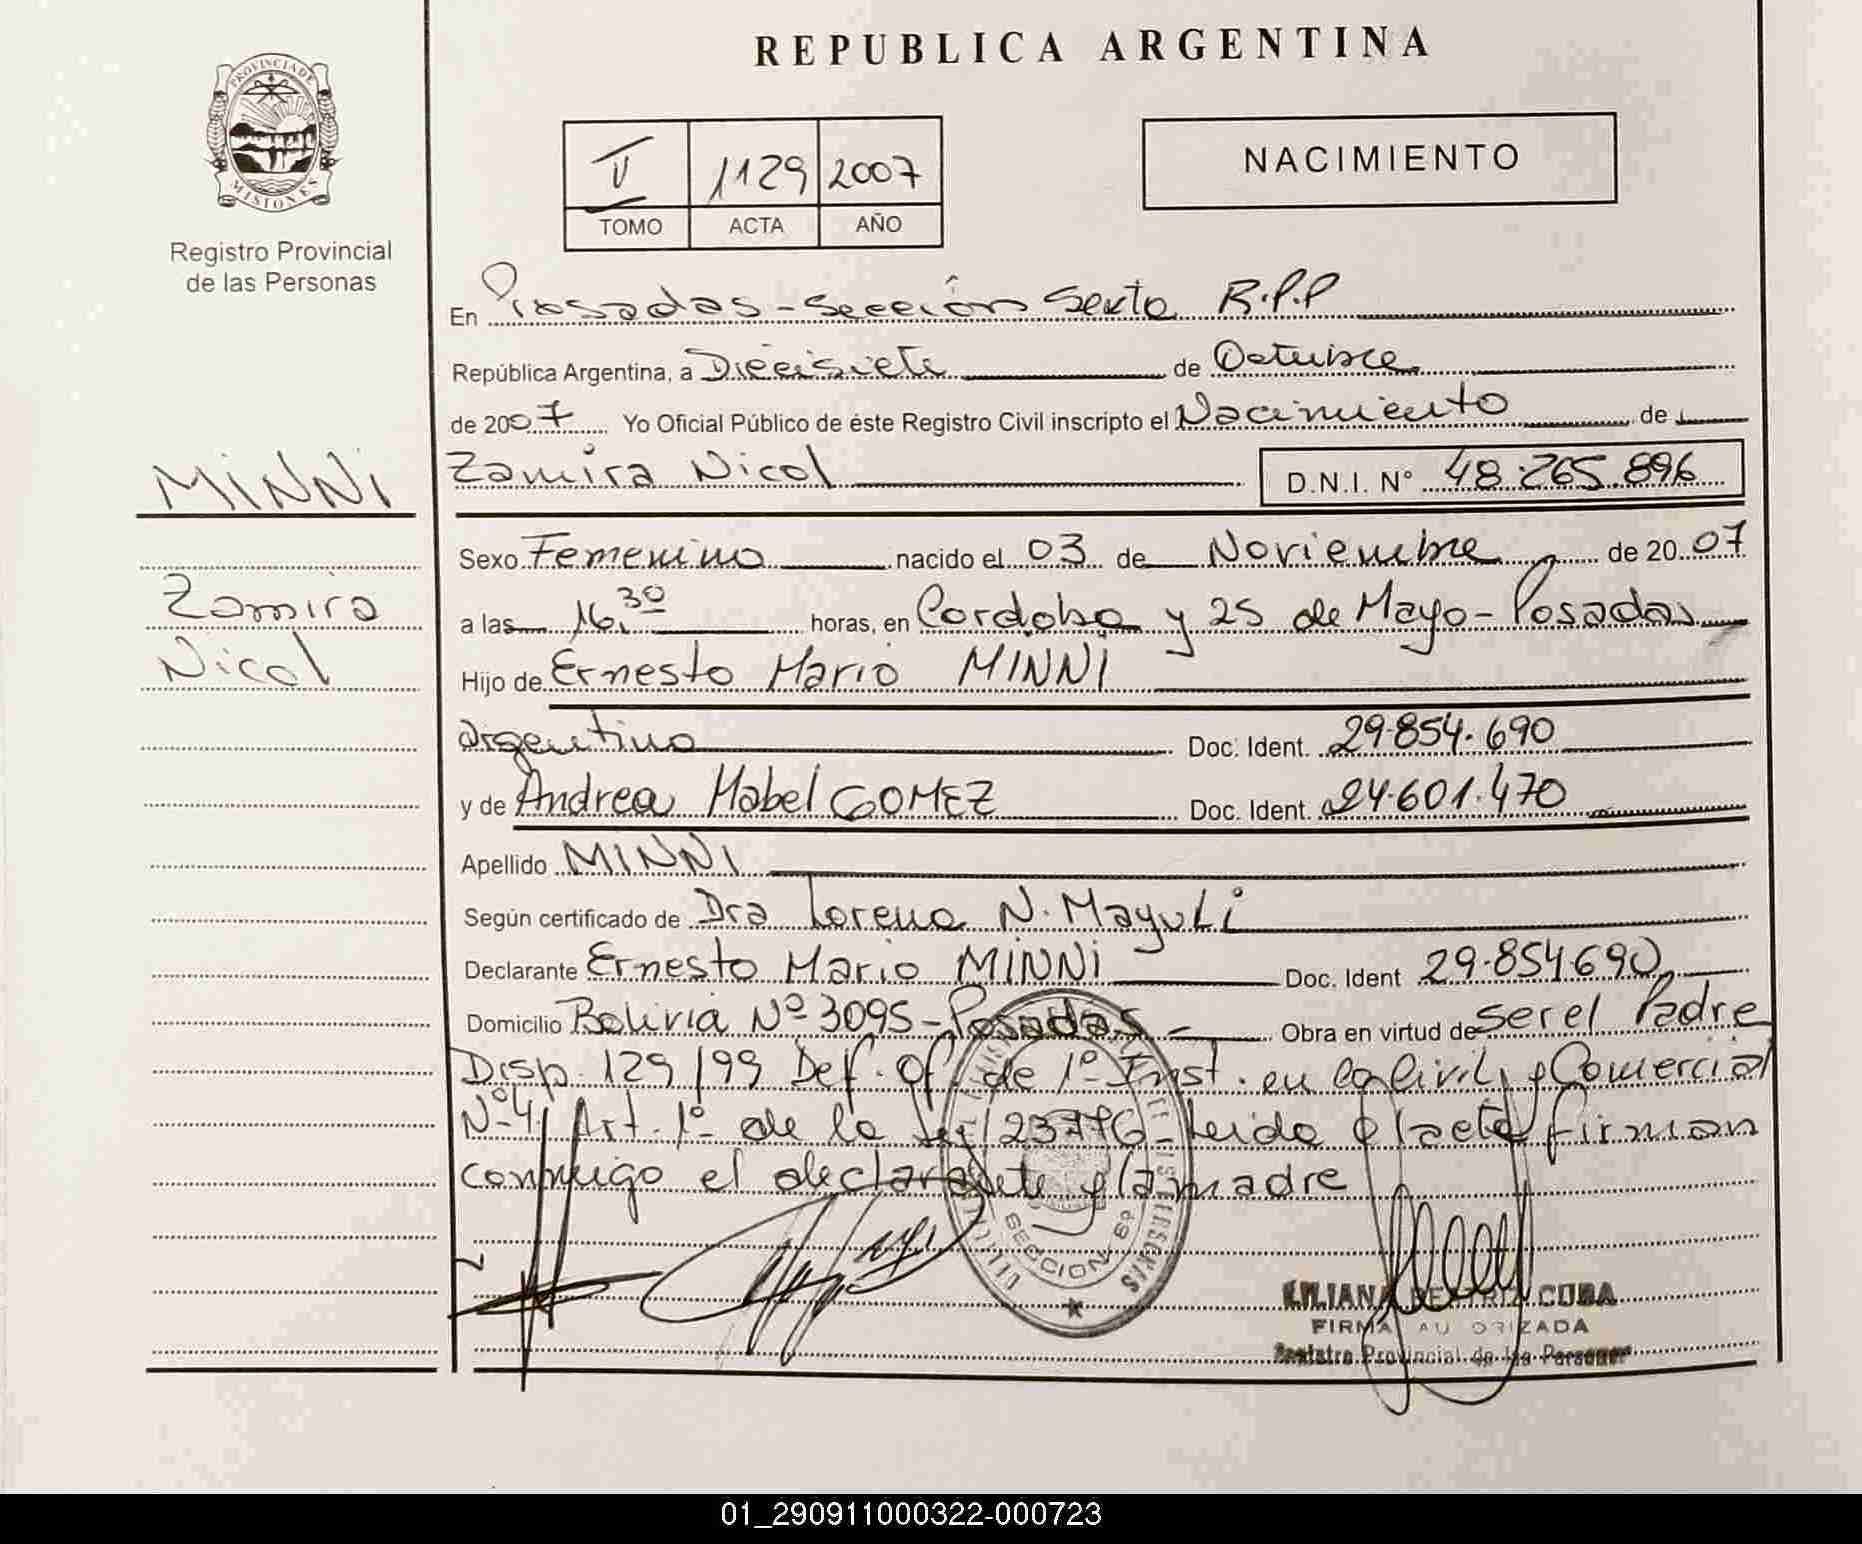 REPUBLICA ARGENTINA
PROVINCIA DE MISIONES
Registro Provincial
de las Personas
V 1129 2007
TOMO ACTA AÑO
NACIMIENTO
En Posadas - Sección Sexta R.P.P
República Argentina, a Diecisiete de Octubre
de 2007 Yo Oficial Público de éste Registro Civil inscripto el Nacimiento de
MINNI
Zamira Nicol D.N.I. N° 48.265.896
Sexo Femenino nacido el 03 de Noviembre de 2007
Zamira
a las 16.30 horas, en Cordoba y 25 de Mayo - Posadas
Nicol
Hijo de Ernesto Mario MINNI
argentino Doc. Ident. 29.854.690
y de Andrea Mabel GOMEZ Doc. Ident. 24.601.470
Apellido MINNI
Según certificado de Dra Lorena N. Mayuli
Declarante Ernesto Mario MINNI Doc. Ident 29.854.690
Domicilio Bolivia Nº 3095 - Posadas - Obra en virtud de ser el Padre
Disp. 129/99 Def. Of. de 1º Inst. en lo Civil y Comercial
Nº 4 Art. 1º de la Ley 23776 - Leida el acta firman
conmigo el declarante y la madre
SECCION 6º
LILIANA BEATRIZ CUBA
FIRMA AUTORIZADA
Registro Provincial de las Personas
01_290911000322-000723